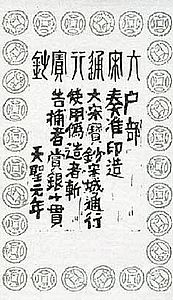 大宋通行寶鈔
户部
奏准印造
大宋鈔城通行
使用偽造者斬
告捕者賞銀貫
天聖元年